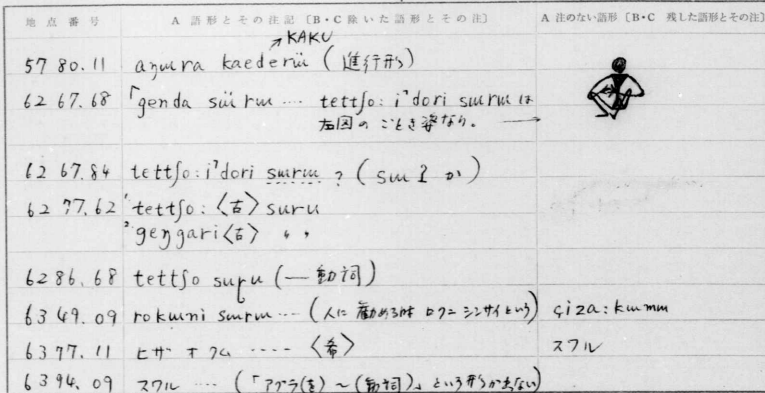 地点番号 A 語形とその注記〔B・C 除いた語形とその注〕 A 注のない語形〔B・C 残した語形とその注〕
KAKU
5780.11 aŋɯra kaederɯ̈ (進行形)
6267.68 「genda sɯ̈rɯ … tettʃo:i˥dori sɯrɯ は
左図のごとき姿なり。→
6267.84 tettʃo:i˥dori sɯrɯ ? (sɯɪか)
6277.62 ¹tettʃo:〈古〉suru
²geŋgari〈古〉 〃 〃
6286.68 tettʃo suɾu (― 動詞)
6349.09 rokɯni sɯrɯ … (人に勧める時 ロクニ シンサイという) çiza:kɯmɯ
6377.11 ヒザ オクム ‥‥ 〈希〉 スワル
6394.09 スワル ‥‥ (「アグラ(を)~(動詞)」という形が出ない)